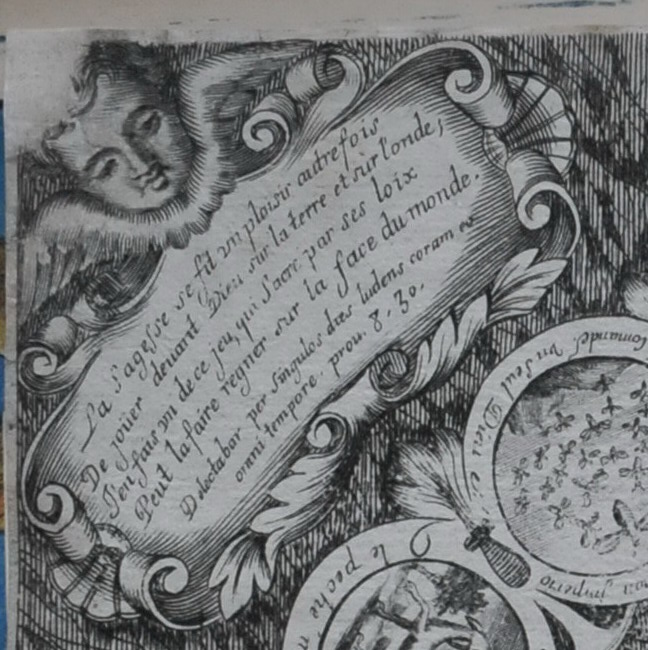 La Sagesse se fit un ploisir autrefois
De joüer devant Dieu sur la terre et sur l'onde;
J'en fais un de ce jeu, qui Sacré par ses loix
Peut la faire regner sur la face du monde.
Delectabar per Singulos dies ludens coram eo
omni tempore. prou. 8. 30.
Comandes un seul Dieu
imperio
le peche